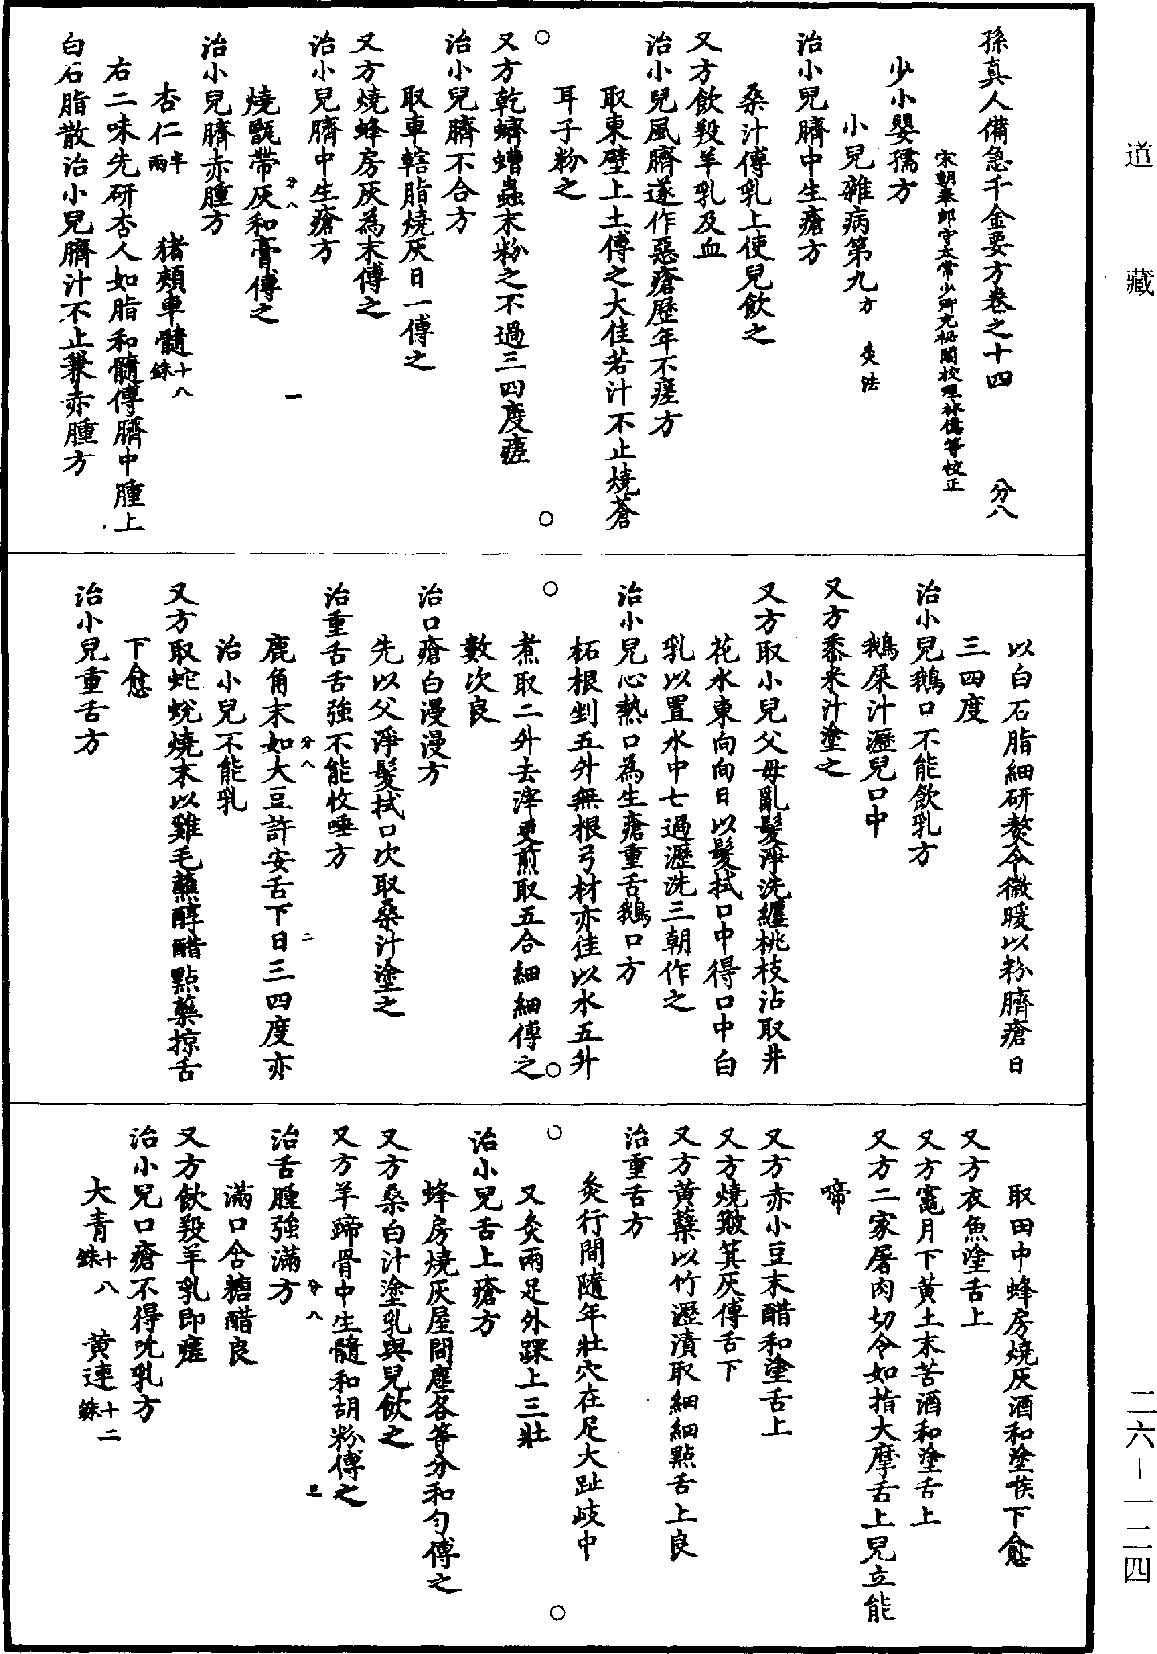 道藏
孫真人備急千金要方卷之十四 分八
宋朝奉郎守太常少卿充秘閣校理林億等校正
少小嬰孺方
小兒雜病第九方 灸法
治小兒臍中生瘡方
桑汁傅乳上使兒飲之
又方飲羖羊乳及血
治小兒風臍遂作惡瘡歷年不瘥方
取東壁上土傅之大佳若汁不止燒蒼
耳子粉之
又方乾蠐螬蟲末粉之不過三四度瘥
治小兒臍不合方
取車轄脂燒灰日一傅之
又方燒蜂房灰為末傅之
治小兒臍中生瘡方
燒甑帶灰和膏傅之
分八 一
治小兒臍赤腫方
杏仁半兩 猪頰車髓十八銖
右二味先研杏人如脂和髓傅臍中腫上
白石脂散治小兒臍汁不止兼赤腫方
以白石脂細研熬令微暖以粉臍瘡日
三四度
治小兒鵝口不能飲乳方
鵝屎汁瀝兒口中
又方黍米汁塗之
又方取小兒父母亂髮淨洗纏桃枝沾取井
花水東向向日以髮拭口中得口中白
乳以置水中七過瀝洗三朝作之
治小兒心熱口為生瘡重舌鵝口方
柘根剉五升無根弓材亦佳以水五升
煮取二升去滓更煎取五合細細傅之
數次良
治口瘡白漫漫方
先以父淨髮拭口次取桑汁塗之
治重舌舌強不能收唾方
鹿角末如大豆許安舌下日三四度亦
分八 二
治小兒不能乳
又方取蛇蛻燒末以雞毛蘸醇醋點藥掠舌
下愈
治小兒重舌方
取田中蜂房燒灰酒和塗喉下愈
又方衣魚塗舌上
又方竈月下黃土末苦酒和塗舌上
又方二家屠肉切令如指大摩舌上兒立能
啼
又方赤小豆末醋和塗舌上
又方燒簸箕灰傅舌下
又方黃蘗以竹瀝漬取細細點舌上良
治重舌方
灸行間隨年壯穴在足大趾歧中
又灸兩足外踝上三壯
治小兒舌上瘡方
蜂房燒灰屋間塵各等分和勻傅之
又方桑白汁塗乳與兒飲之
又方羊蹄骨中生髓和胡粉傅之
分八 三
治舌腫強滿方
滿口含糖醋良
又方飲羖羊乳即瘥
治小兒口瘡不得吮乳方
大青十八銖 黃連十二銖
二六－一二四